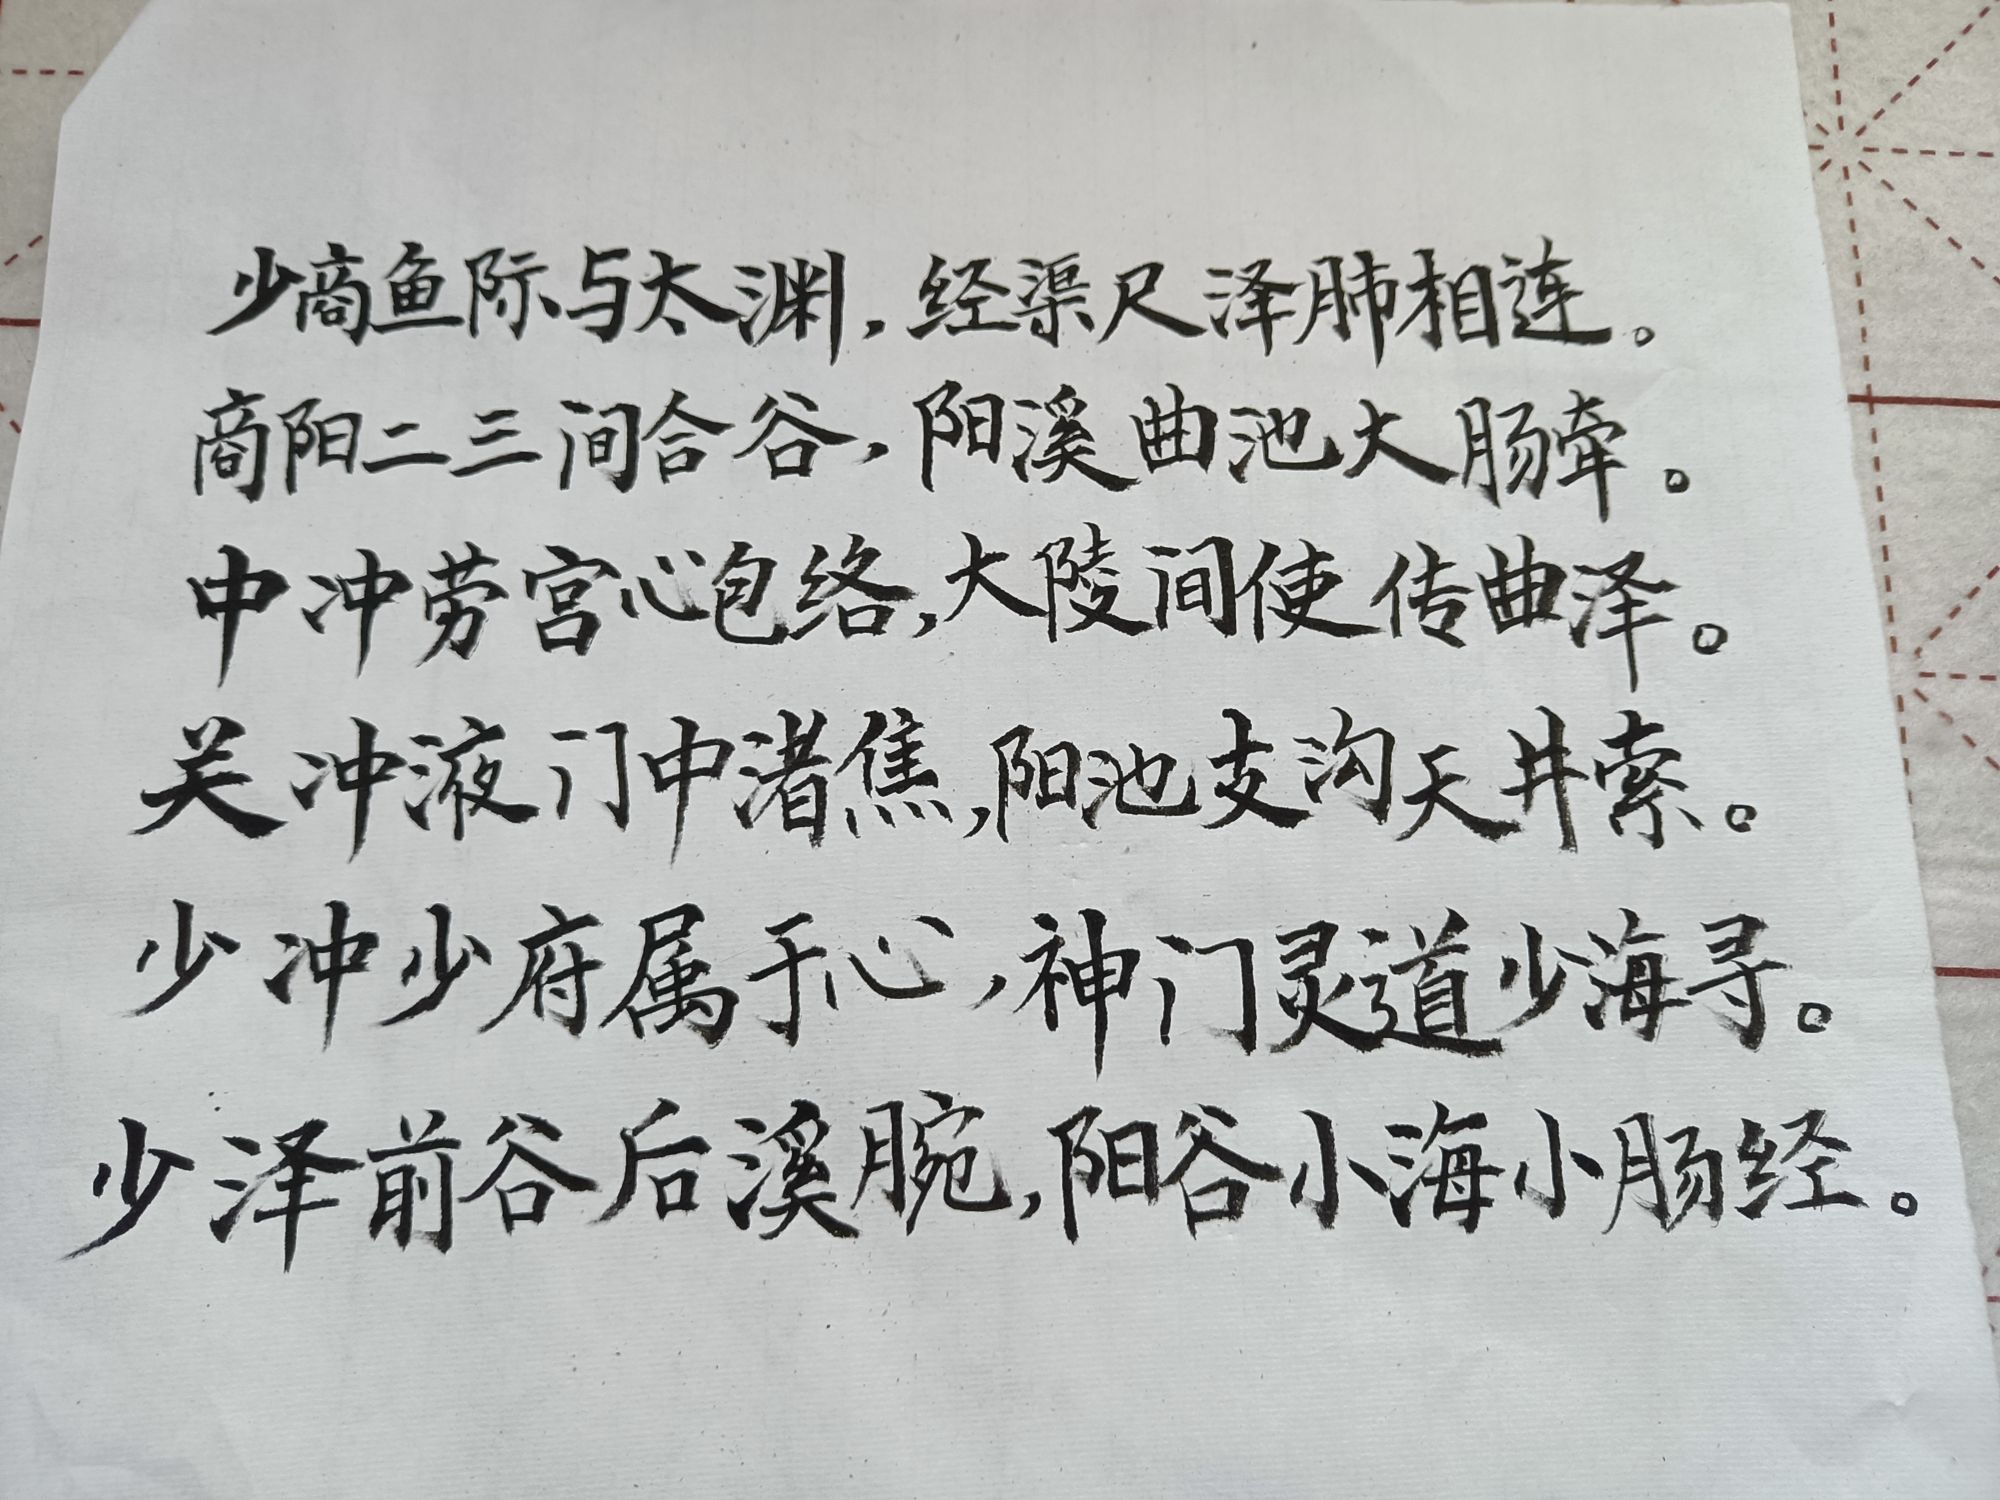 少商鱼际与太渊，经渠尺泽肺相连。
商阳二三间合谷，阳溪曲池大肠牵。
中冲劳宫心包络，大陵间使传曲泽。
关冲液门中渚焦，阳池支沟天井索。
少冲少府属于心，神门灵道少海寻。
少泽前谷后溪腕，阳谷小海小肠经。